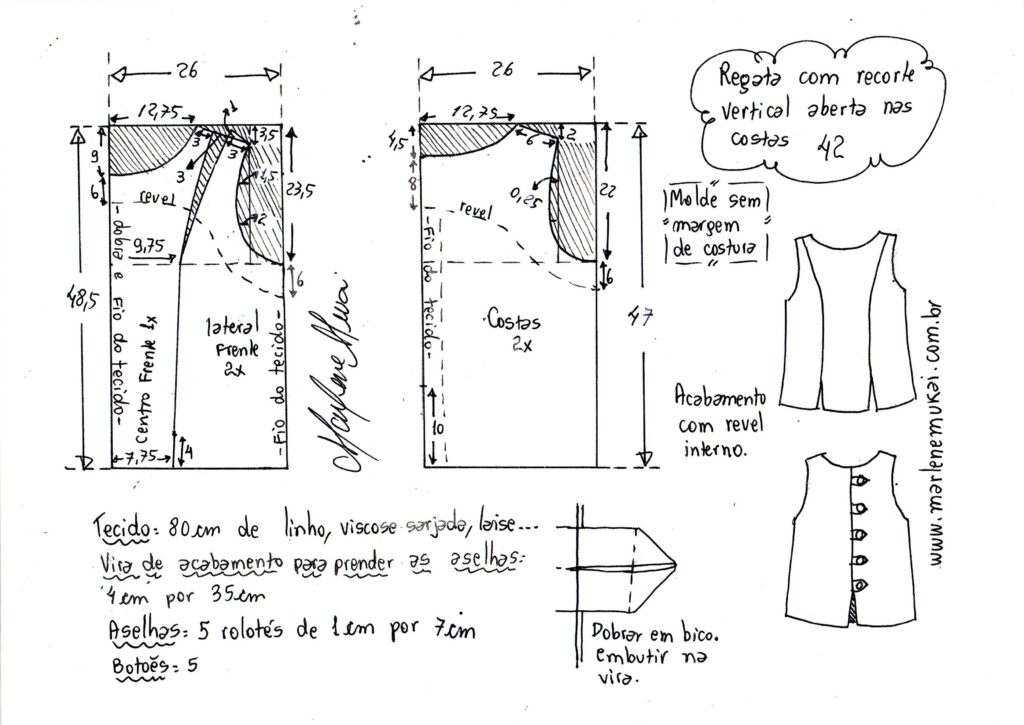 26
12,75
1
3,5
3
3
3
9
6
revel
4,5
2
23,5
6
9,75
48,5
dobra e Fio do tecido
Centro Frente 1x
lateral
Frente
2x
Fio do tecido
7,75
4
Marlene Mukai
26
12,75
4,5
8
6
2
0,25
22
revel
6
Fio do tecido
Costas
2x
47
10
Regata com recorte
vertical aberta nas
costas 42
Molde sem
margem
de costura
Acabamento
com revel
interno.
www.marlenemukai.com.br
Tecido: 80cm de linho, viscose sarjada, laise...
Vira de acabamento para prender as aselhas:
4cm por 35cm
Aselhas: 5 rolotés de 1cm por 7cm
Botões: 5
Dobrar em bico.
embutir na
vira.